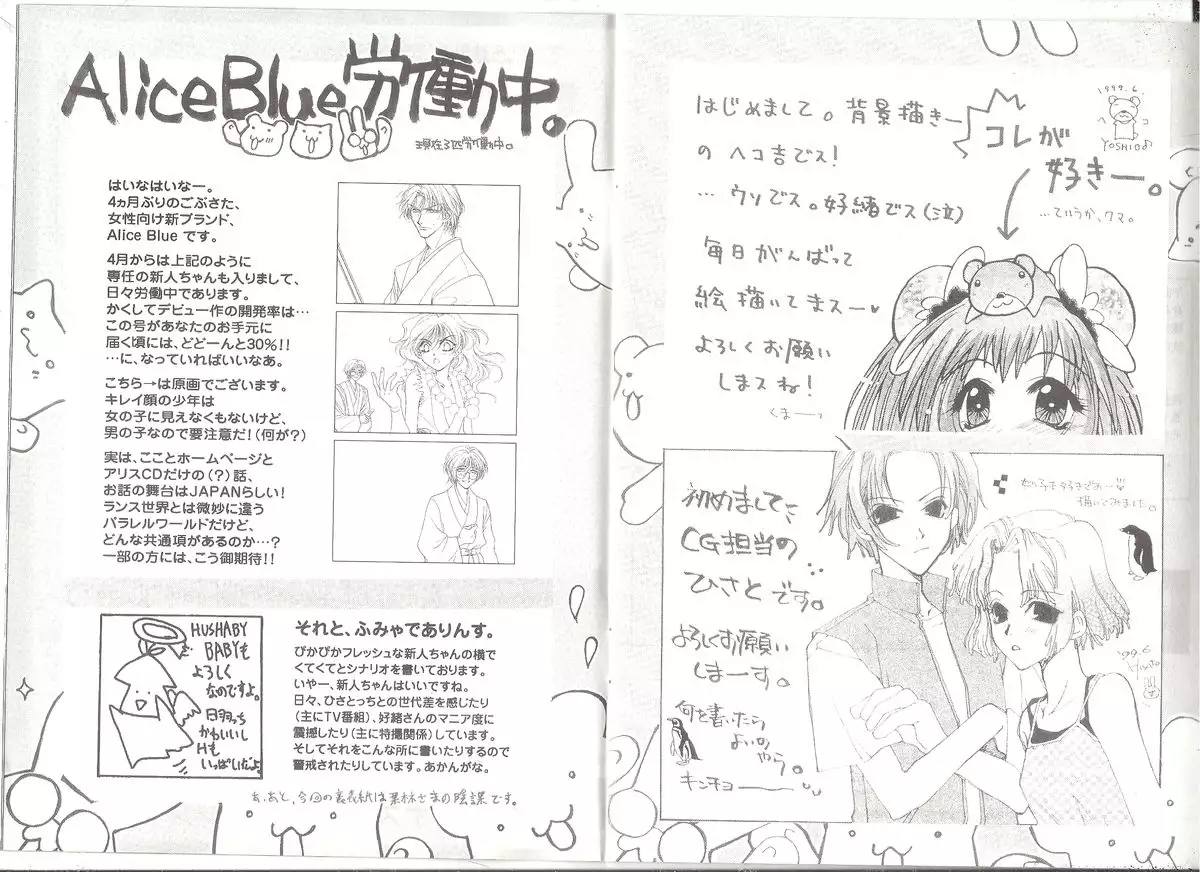 AliceBlue労働中。
現在3匹労働中。
はいなはいなー。
4ヵ月ぶりのごぶさた、
女性向け新ブランド、
Alice Blue です。
4月からは上記のように
専任の新人ちゃんも入りまして、
日々労働中であります。
かくしてデビュー作の開発率は…
この号があなたのお手元に
届く頃には、どどーんと30%!!
…に、なっていればいいなあ。
こちら→は原画でございます。
キレイ顔の少年は
女の子に見えなくもないけど、
男の子なので要注意だ!(何が?)
実は、こことホームページと
アリスCDだけの(?)話、
お話の舞台はJAPANらしい!
ランス世界とは微妙に違う
パラレルワールドだけど、
どんな共通項があるのか…?
一部の方には、こう御期待!!
HUSHABY
BABYも
よろしく
なのですよ。
かわいいし
Hも
いっぱいだよ
それと、ふみゃでありんす。
ぴかぴかフレッシュな新人ちゃんの横で
くてくてとシナリオを書いております。
いやー、新人ちゃんはいいですね。
日々、ひさとっちとの世代差を感じたり
(主にTV番組)、好緒さんのマニア度に
震撼したり(主に特撮関係)しています。
そしてそれをこんな所に書いたりするので
警戒されたりしています。あかんがな。
あ、あと、今回の裏表紙は栗林さまの陰謀です。
はじめまして。背景描きー
の ヘコ吉でス!
… ウソでス。好緒でス(泣)
毎日がんばって
絵描いてまスー♥
よろしくお願い
しまスね!
くまーっ
コレが
好きー。
…ていうか、クマ。
1999.6
ヘコ
YOSHIO♪
初めまして、
CG担当の
ひさとです。
よろしくお願い
しまーす。
何を書いたら
よいのやら。
キンチョーーー
描いてみました。
'99.6
Hisato